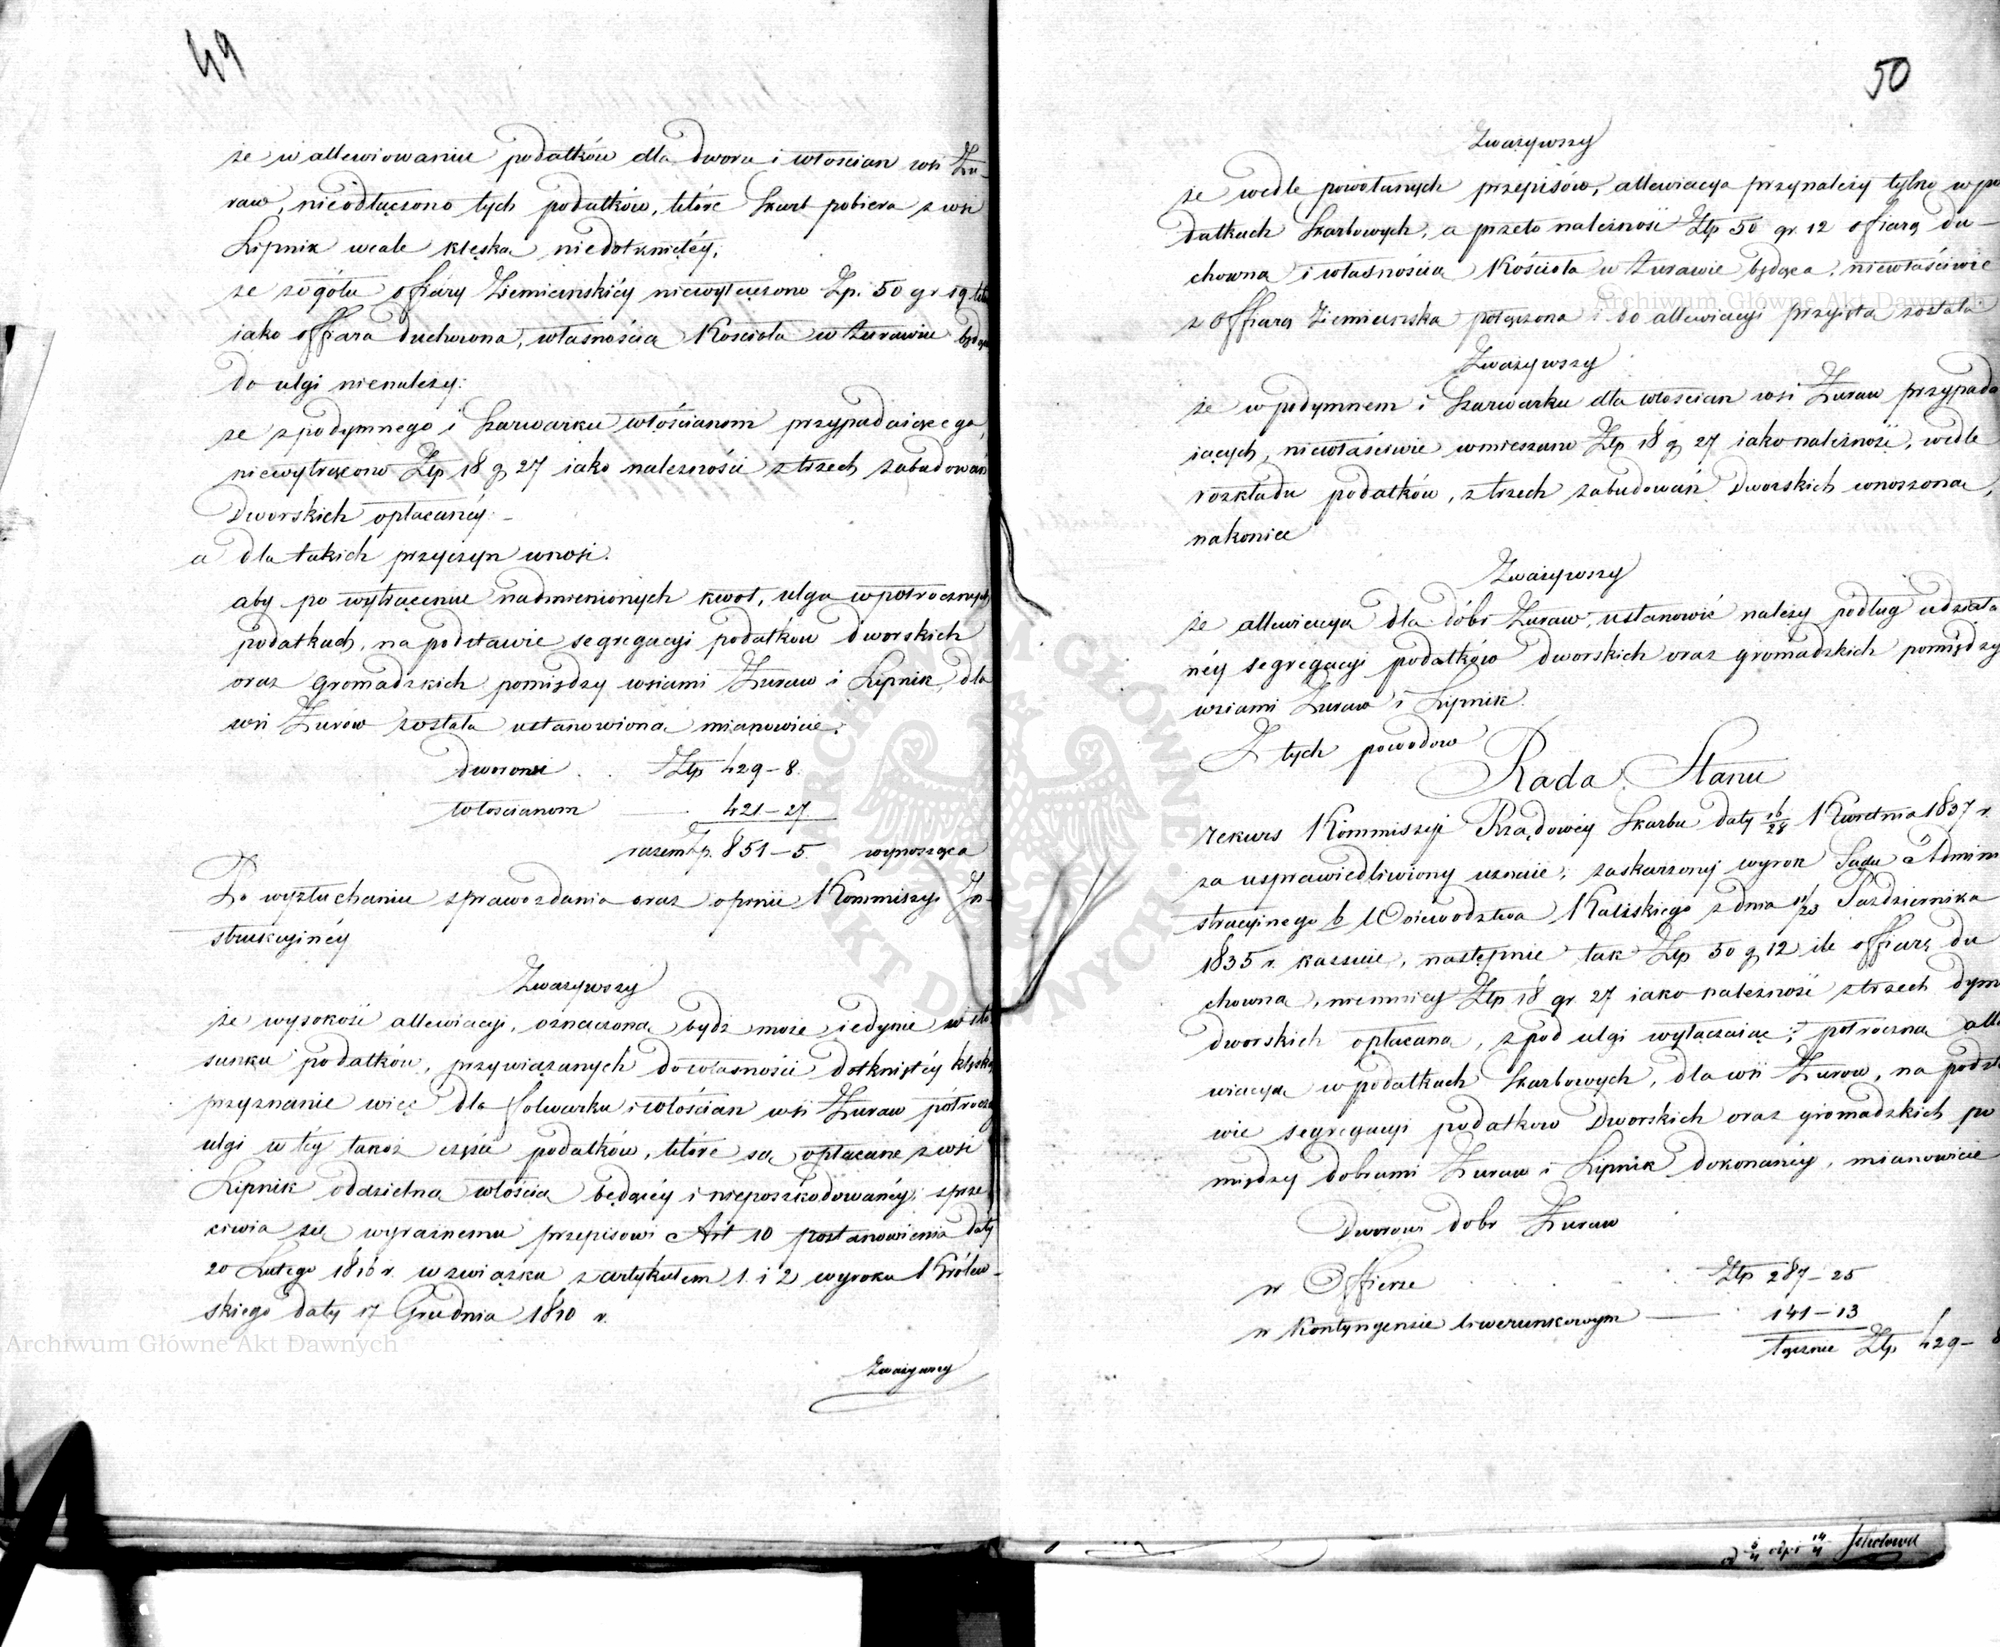 49
że w allewiowaniu podatków dla dworu i włościan wsi Żu-
raw, nieodłączono tych podatków, które Skarb pobiera z wsi
Lipnik wcale klęską niedotkniętéy;
że z ogółu offiary Ziemiańskiéy niewyłączono Zp. 50 gr 12
iako offiara duchowna, własnością Kościoła w Żurawiu będąca
do ulgi nienależy:
że z podymnego i Szarwarku włościanom przypadaiącego,
niewytrącono Złp 18 g 27 iako należności z trzech zabudowań
Dworskich opłacanéy. –
a dla takich przyczyn wnosi.
aby po wytrąceniu nadmienionych kwot, ulga w półrocznych
podatkach, na podstawie segregacyi podatków dworskich
oraz gromadzkich pomiędzy wsiami Żuraw i Lipnik, dla
wsi Żurów została ustanowiona mianowicie:
dworowi . . Złp 429 – 8.
włościanom 421 – 27
razem Zp. 851 – 5. wynosząca
Po wysłuchaniu sprawozdania oraz opinii Kommissyi In-
strukcyinéy
Zważywszy
że wysokość allewiacyi, oznaczoną bydź może iedynie w sto-
sunku podatków, przywiązanych do własności dotkniętéy klęską
przyznanie więc dla folwarku i włościan wsi Żuraw półroczn
ulgi w téy takoż części podatków, które są opłacane z wsi
Lipnik oddzielną włością będącéy i nieposzkodowanéy, sprze-
ciwia się wyraźnemu przepisowi Art 10 postanowienia daty
20 Lutego 1816 r. w związku z artykułem 1. i 2 wyroku Królew-
skiego daty 17 Grudnia 1810 r.
Zważywszy
50
Zważywszy
że wedle powołanych przepisów, allewiacya przynależy tylko w po
datkach Skarbowych, a przeto należność Złp 50 gr. 12 offiarą du-
chowną i własnością Kościoła w Żurawie będąca, niewłaściwie
z Offiarą Ziemiańską połączona i do allewiacyi przyięta została
Zważywszy
że w podymnem i Szarwarku dla włościan wsi Żuraw przypada
iących, niewłaściwie wmieszano Złp 18 g 27 iako należność, wedle
rozkładu podatków, z trzech zabudowań Dworskich wnoszoną,
nakoniec
Zważywszy
że allewiacya dla dóbr Żuraw, ustanowić należy podług udziała
néy segregacyi podatków dworskich oraz gromadzkich pomiędzy
wsiami Żuraw i Lipnik.
Z tych powodów
Rada Stanu
rekurs Kommissyi Rządowéy Skarbu daty 16/28 Kwietnia 1837 r.
za usprawiedliwiony uznaie, zaskarżony wyrok Sądu Admini
stracyinego b. Woiewodztwa Kaliskiego z dnia 11/23 Października
1835 r. kassuie, następnie tak Złp 50 g 12 ile offiarę du
chowną, niemniey Złp 18 gr. 27 iako należność z trzech dym
dworskich opłacaną, z pod ulgi wyłączaiąc; półroczna alle
wiacya w podatkach Skarbowych, dla wsi Żurow, na podsta
wie segregacyi podatkow Dworskich oraz gromadzkich po
między dobrami Żuraw i Lipnik dokonanéy, mianowicie
Dworowi dobr Żuraw
w Offierze . . . Złp 287 – 25
w Kontyngensie liwerunkowym 141 – 13
łącznie Złp. 429 – 8
Archiwum Główne Akt Dawnych
Archiwum Główne Akt Dawnych
ARCHIWUM GŁÓWNE AKT DAWNYCH